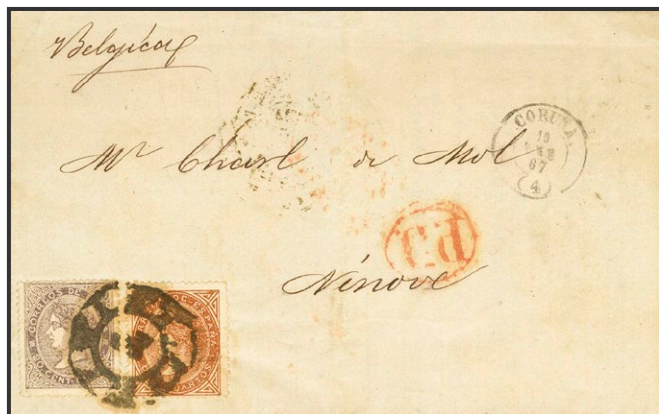 Belgica
CORUÑA.
10
67
(4)
Mr Charl de Mol
P.D.
Ninove
CORREOS DE
50 CENT
OS ESPAÑA